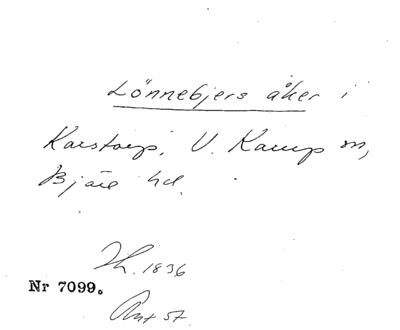 Lönnebjers åker i
Karstorp, V. Karup sn,
Bjäre hd.
Th. 1836
Nr 7099.
Ant 57